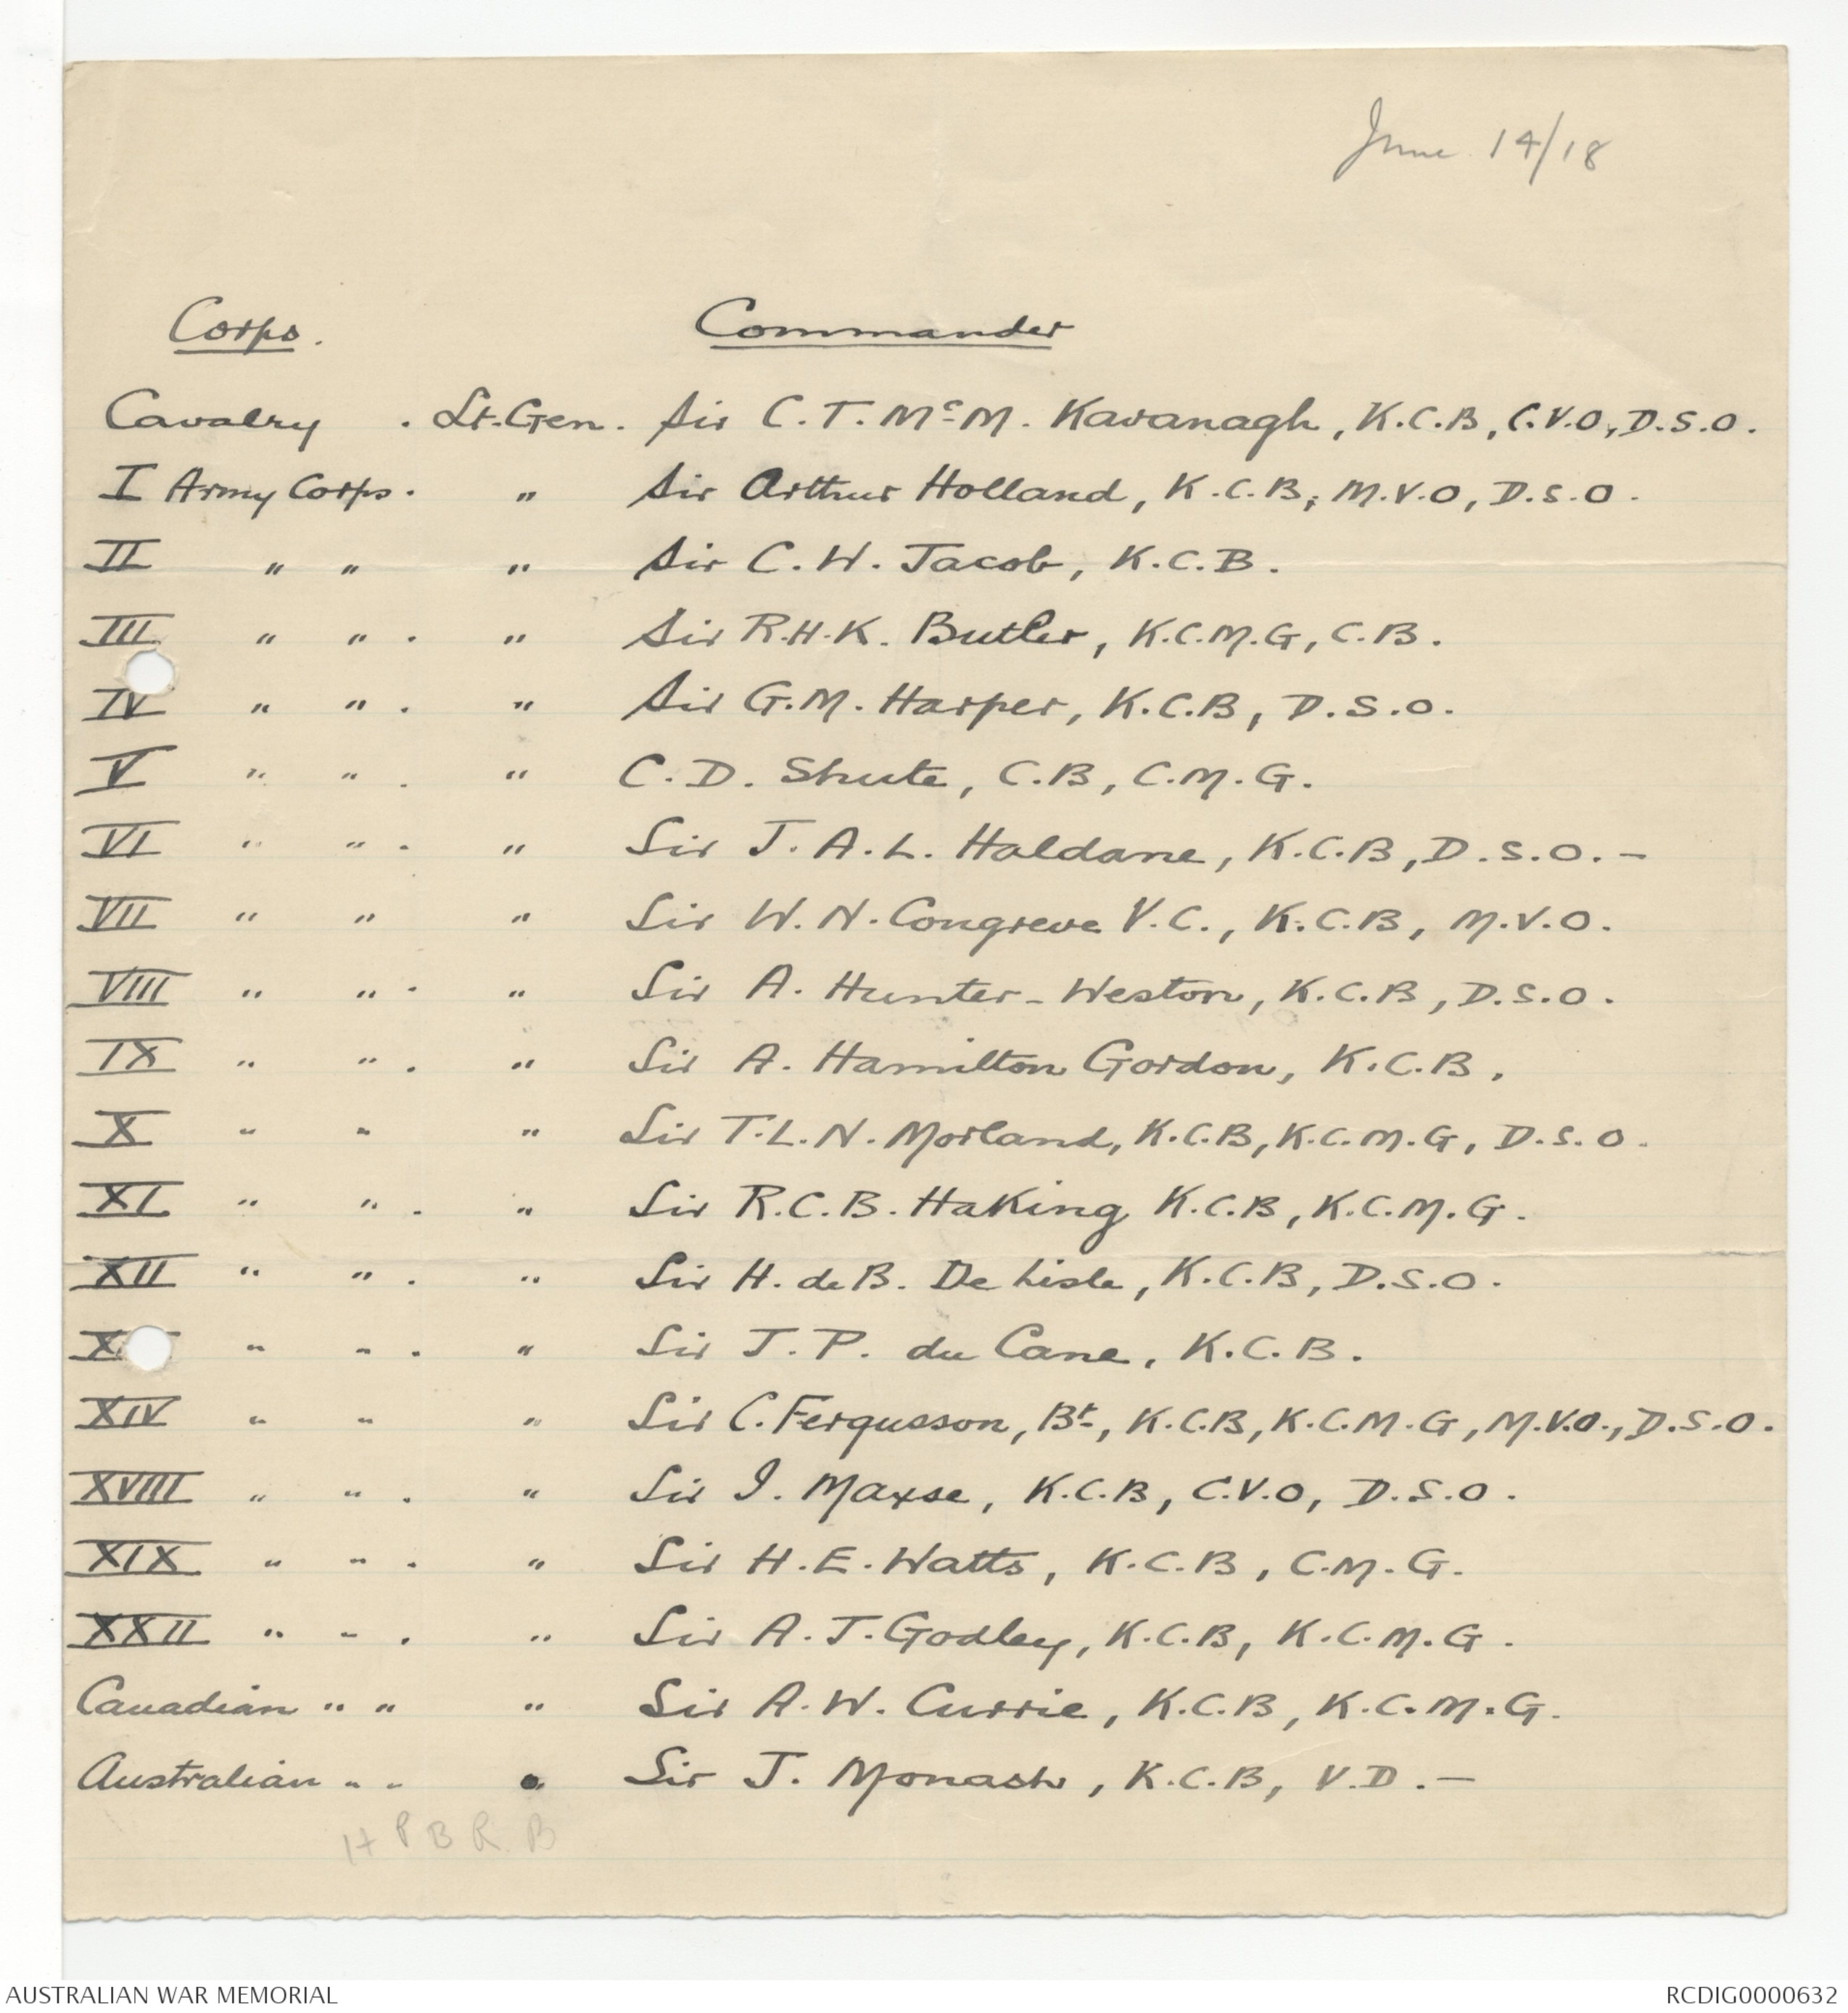 June 14/18
Corps. Commander
Cavalry . Lt. Gen. Sir C. T. McM. Kavanagh, K.C.B, C.V.O, D.S.O.
I Army Corps. " Sir Arthur Holland, K.C.B, M.V.O, D.S.O.
II " " " Sir C. W. Jacob, K.C.B.
III " " . " Sir R.H.K. Butler, K.C.M.G, C.B.
IV " " . " Sir G.M. Harper, K.C.B, D.S.O.
V " " . " C. D. Shute, C.B, C.M.G.
VI " " . " Sir J. A. L. Haldane, K.C.B, D.S.O. -
VII " " " Sir W. N. Congreve V.C., K.C.B, M.V.O.
VIII " " . " Sir A. Hunter-Weston, K.C.B, D.S.O.
IX " " . " Sir A. Hamilton Gordon, K.C.B.
X " " " Sir T.L.N. Morland, K.C.B, K.C.M.G, D.S.O.
XI " " . " Sir R.C.B. Haking K.C.B, K.C.M.G.
XII " " . " Sir H. de B. De Lisle, K.C.B, D.S.O.
" " . " Sir J. P. du Cane, K.C.B.
XIV " " " Sir C. Fergusson, Bt, K.C.B, K.C.M.G, M.V.O., D.S.O.
XVIII " " . " Sir I. Maxse, K.C.B, C.V.O, D.S.O.
XIX " " . " Sir H. E. Watts, K.C.B, C.M.G.
XXII " " . " Sir A. J. Godley, K.C.B, K.C.M.G.
Canadian " " " Sir A. W. Currie, K.C.B, K.C.M.G.
Australian " " " Sir J. Monash, K.C.B, V.D. -
H P B R B
AUSTRALIAN WAR MEMORIAL
RCDIG0000632